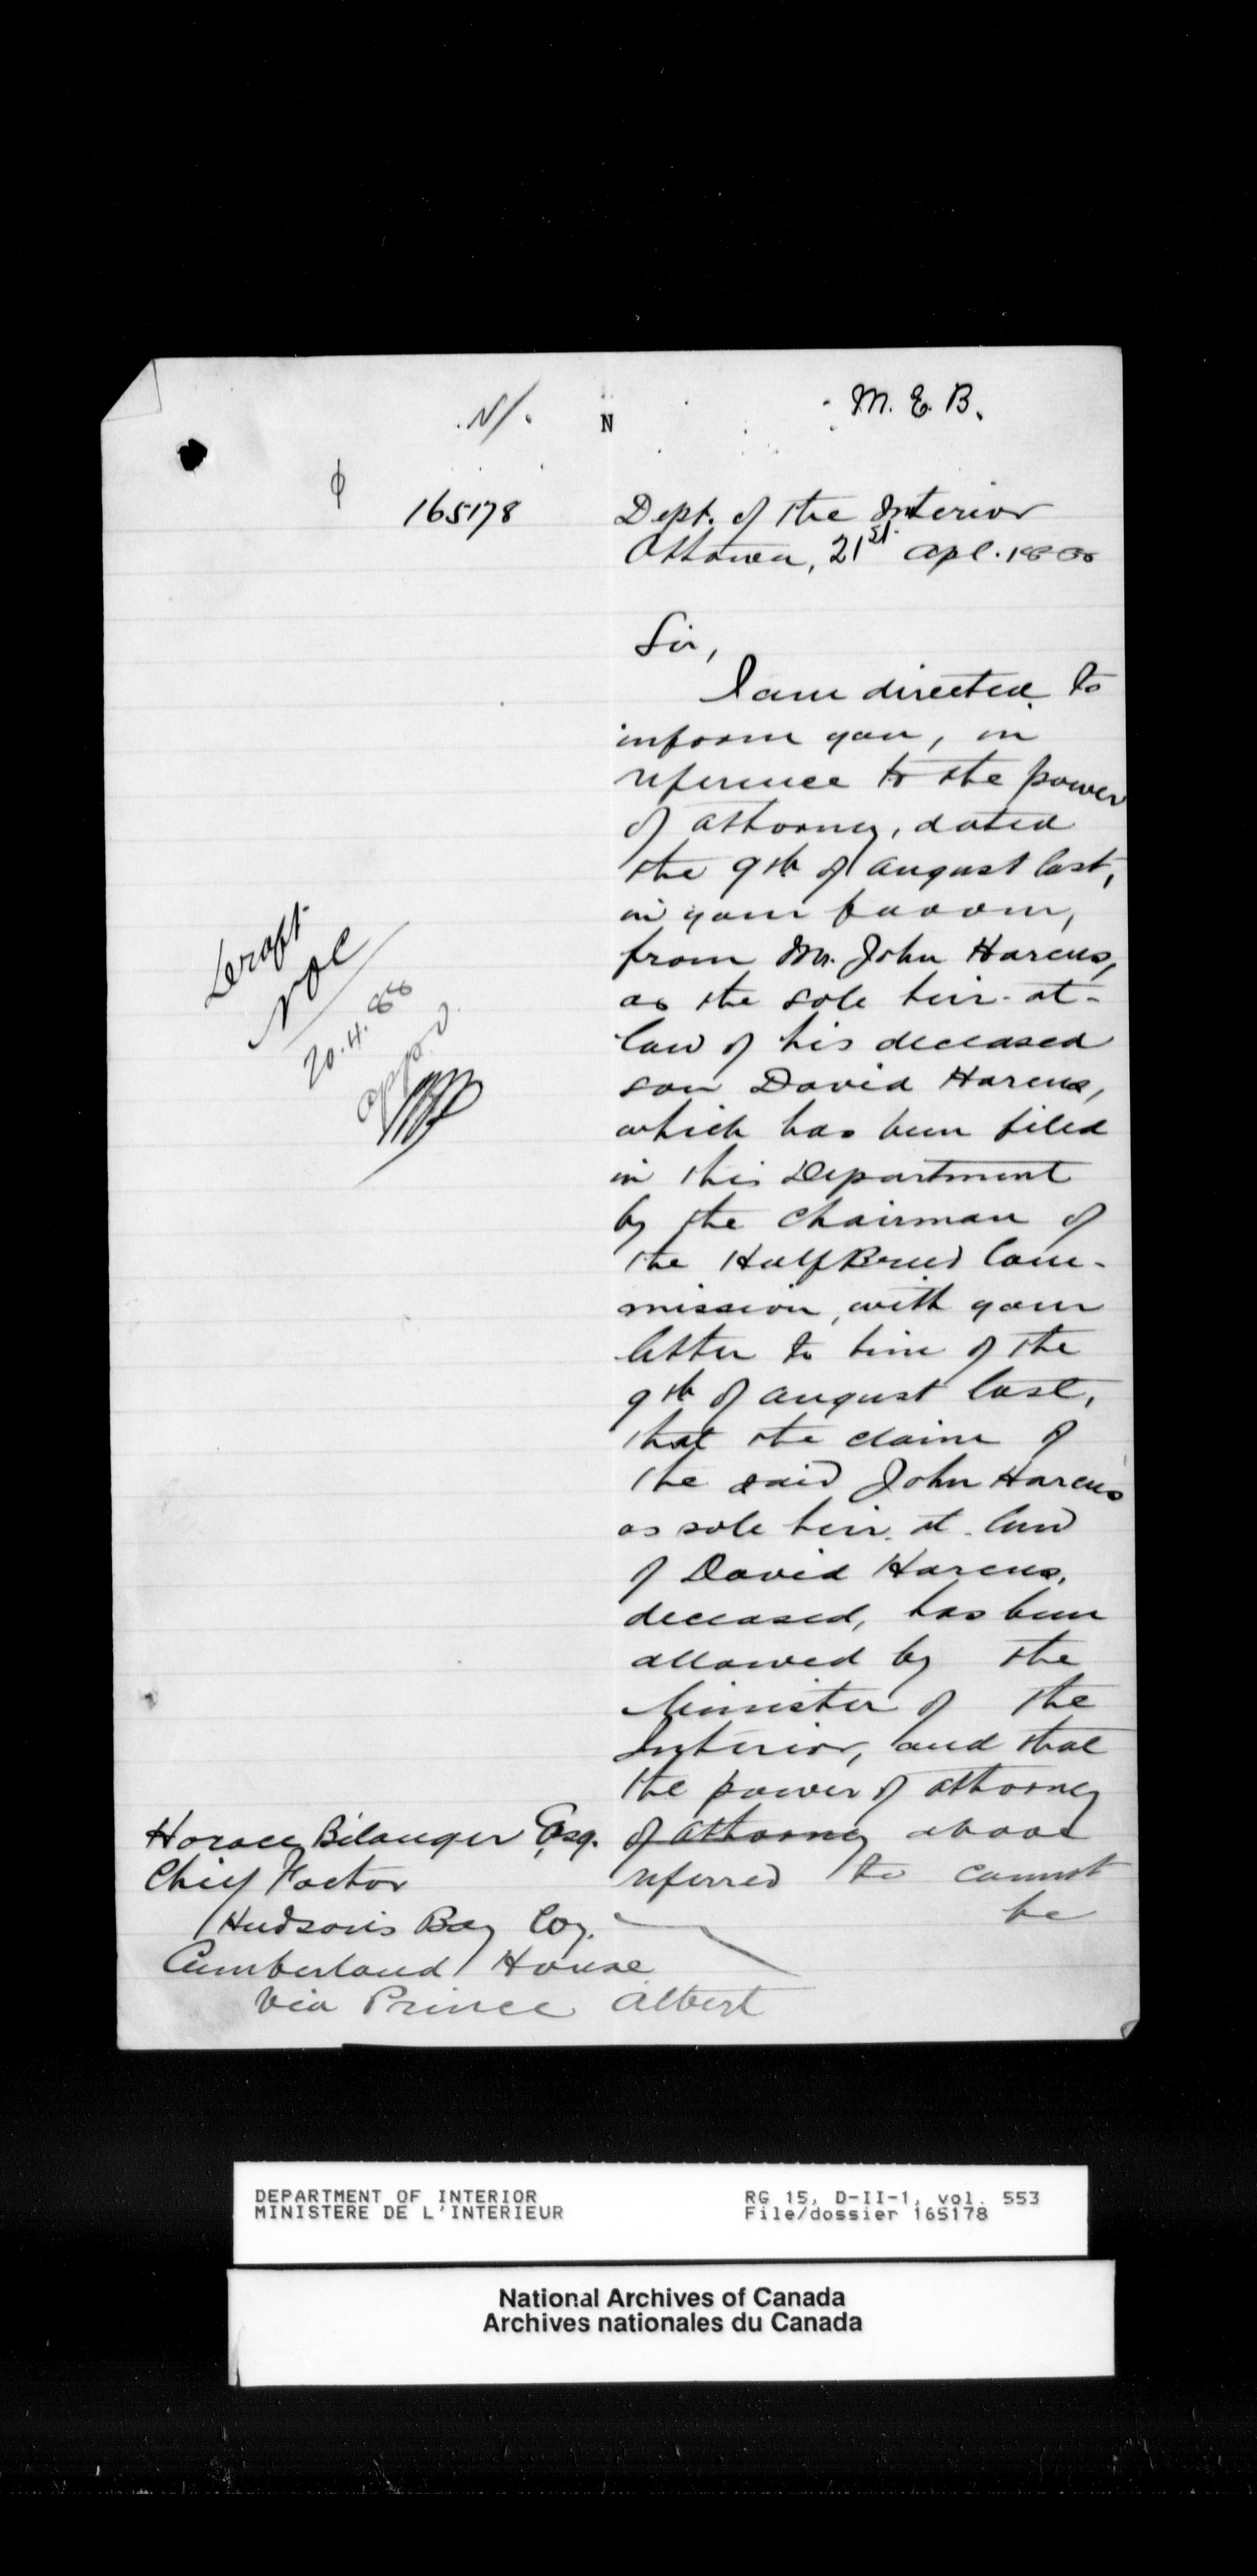 N/.
N
M. E. B.
165178
Dept. of the Interior
Ottawa, 21st. Apl. 1888
Sir,
I am directed to
inform you, in
reference to the power
of attorney, dated
the 9th of August last,
in your favour,
from Mr. John Harcus,
as the sole heir-at-
law of his deceased
son David Harcus,
which has been filed
in this Department
by the Chairman of
the HalfBreed Com-
mission, with your
letter to him of the
9th of August last,
that the claim of
the said John Harcus
as sole heir-at-law
of David Harcus,
deceased, has been
allowed by the
Minister of the
Interior, and that
the power of attorney
of attorney above
referred to cannot
be
Draft
20.4.88
appd.
Horace Bélanger Esq.
Chief Factor
Hudson's Bay Coy.
Cumberland House
Via Prince Albert
DEPARTMENT OF INTERIOR
MINISTERE DE L'INTERIEUR
RG 15, D-II-1, vol. 553
File/dossier 165178
National Archives of Canada
Archives nationales du Canada